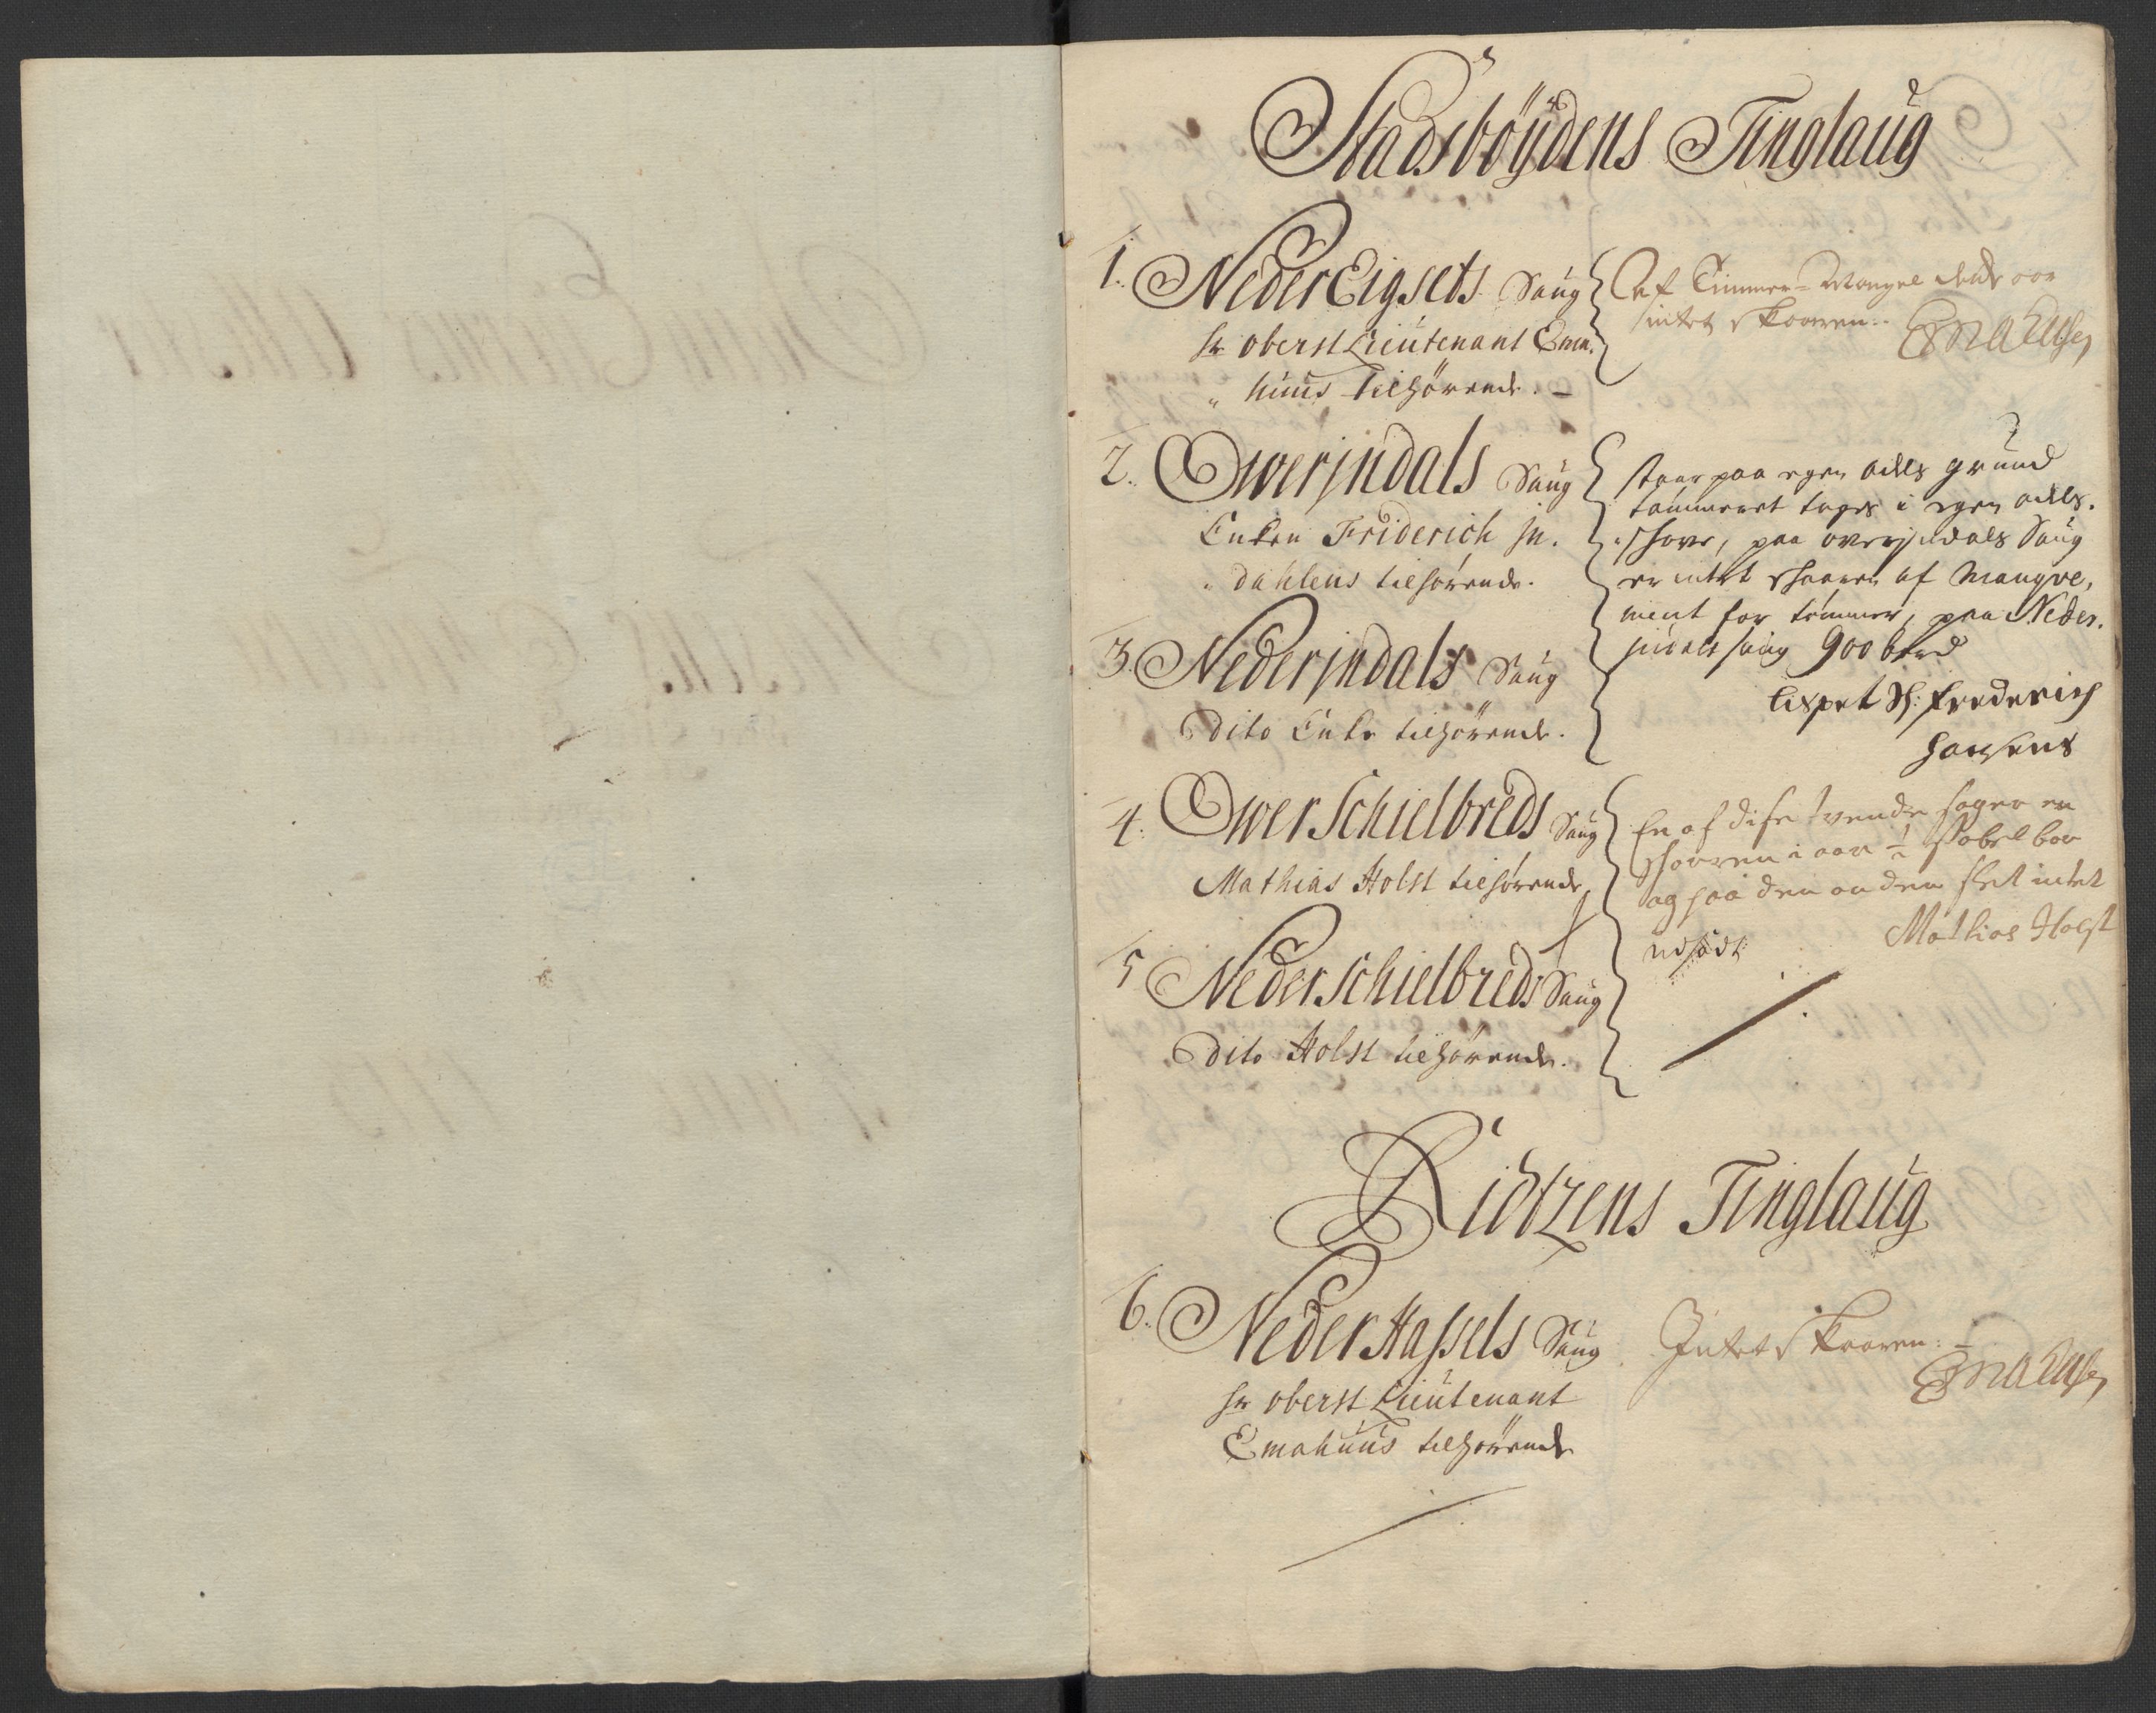 Stadsböÿdens Tinglaug
1. NederEigsets Saug
Hr oberstLieutenant Ema,
" huus tilhörende. –
Af Timmer-Mangel dette aar
intet skaaren.
2. Owerjndals Saug
Enken Friderich jn,
" dahlens tilhörende.
3. Nederjndals Saug
Dito Enke tilhörende.
staar paa egen odels grund
tømmeret tages i egen odels,
schove, paa overjndals Saug
er intet schaaren af Mangve,
ment for tømmer, paa Neder,
jndals saug 900 bord
Lispet Sl: Frederich
Hansens
4. Ower Schielbreds Saug
Mathias Holst tilhörende
5 Neder Schielbreds Saug
Dito Holst tilhörende.
En af disse tvende sager er
schaaren i aar ½ stabel bor
og paa den anden slet intet
Mathias Holst
Ridtzens Tinglaug
6. Neder Hassels Saug
Hr oberst Lieutenant
Emahuus tilhörende
Intet skaaren.